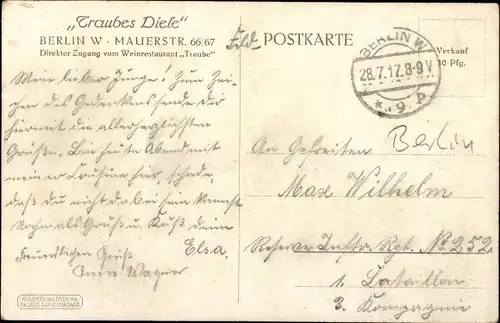 „Traubes Diele"
BERLIN W · MAUERSTR. 66/67
Direkter Zugang vom Weinrestaurant „Traube"
Feld POSTKARTE
BERLIN W
28.7.17.8-9V
* 9. P
Verkauf
10 Pfg.
Mein lieber Junge! Zum Zei-
chen des Gedenkens sende Dir
hiermit die allerherzlichsten
Grüße. Bin heute Abend mit
meiner Cousine hier, schade,
daß du nicht da bist
Nochmals Gruß u. Kuß deine
Elsa.
Freundlichen Gruß
Wagner
Berlin
An Gefreiten
Max Wilhelm
Reserve Inftr. Rgt. No 252
1. Bataillon
3. Kompagnie